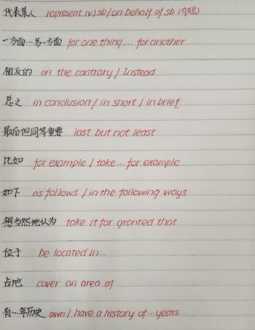 代表某人 represent (v.) sb / on behalf of sb
一方面…另一方面 for one thing... for another
相反的 on the contrary / Instead
总之 in conclusion / in short / in brief
最后但同等重要 last but not least
比如 for example / take... for example
如下 as follows / in the following ways
想当然地认为 take it for granted that
位于 be located in...
占地 cover an area of
有…年历史 own / have a history of ... years